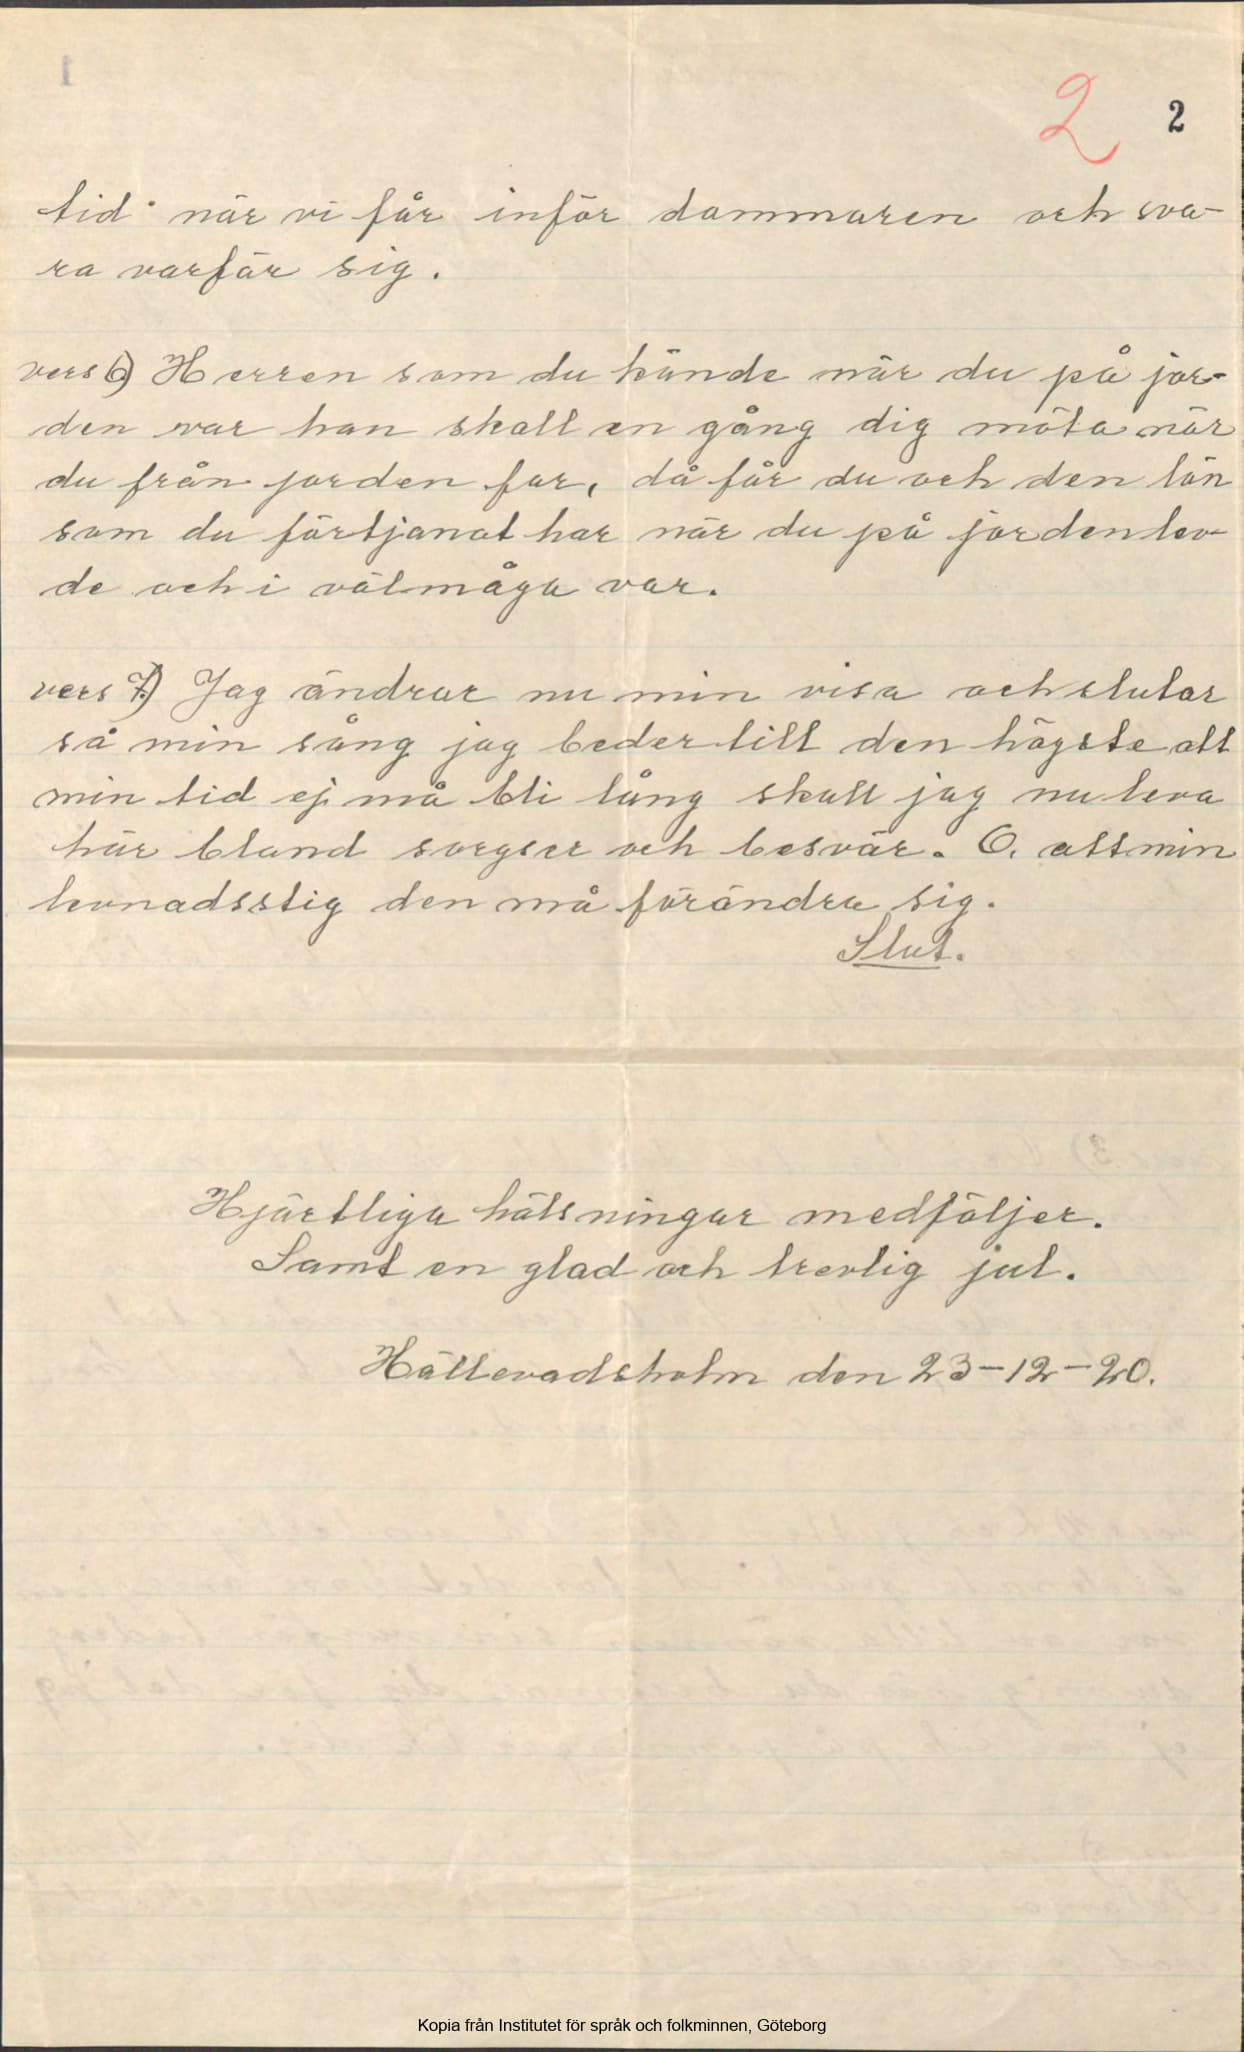 2 2
tid när vi får inför dommaren och sva-
ra varför sig.
vers 6) Herren som du kände när du på jor-
den var han skall en gång dig möta när
du från jorden far, då får du och den lön
som du förtjanat har när du på jorden lev-
de och i välmåga var.
vers 7) Jag ändrar nu min visa och slutar
så min sång jag beder till den högste att
min tid ej må bli lång skall jag nu leva
här bland sorgser och besvär. O, att min
levnadsstig den må förändra sig.
Slut.
Hjärtliga hälsningar medföljer.
Samt en glad och trevlig jul.
Hällevadsholm den 23-12-20.
Kopia från Institutet för språk och folkminnen, Göteborg